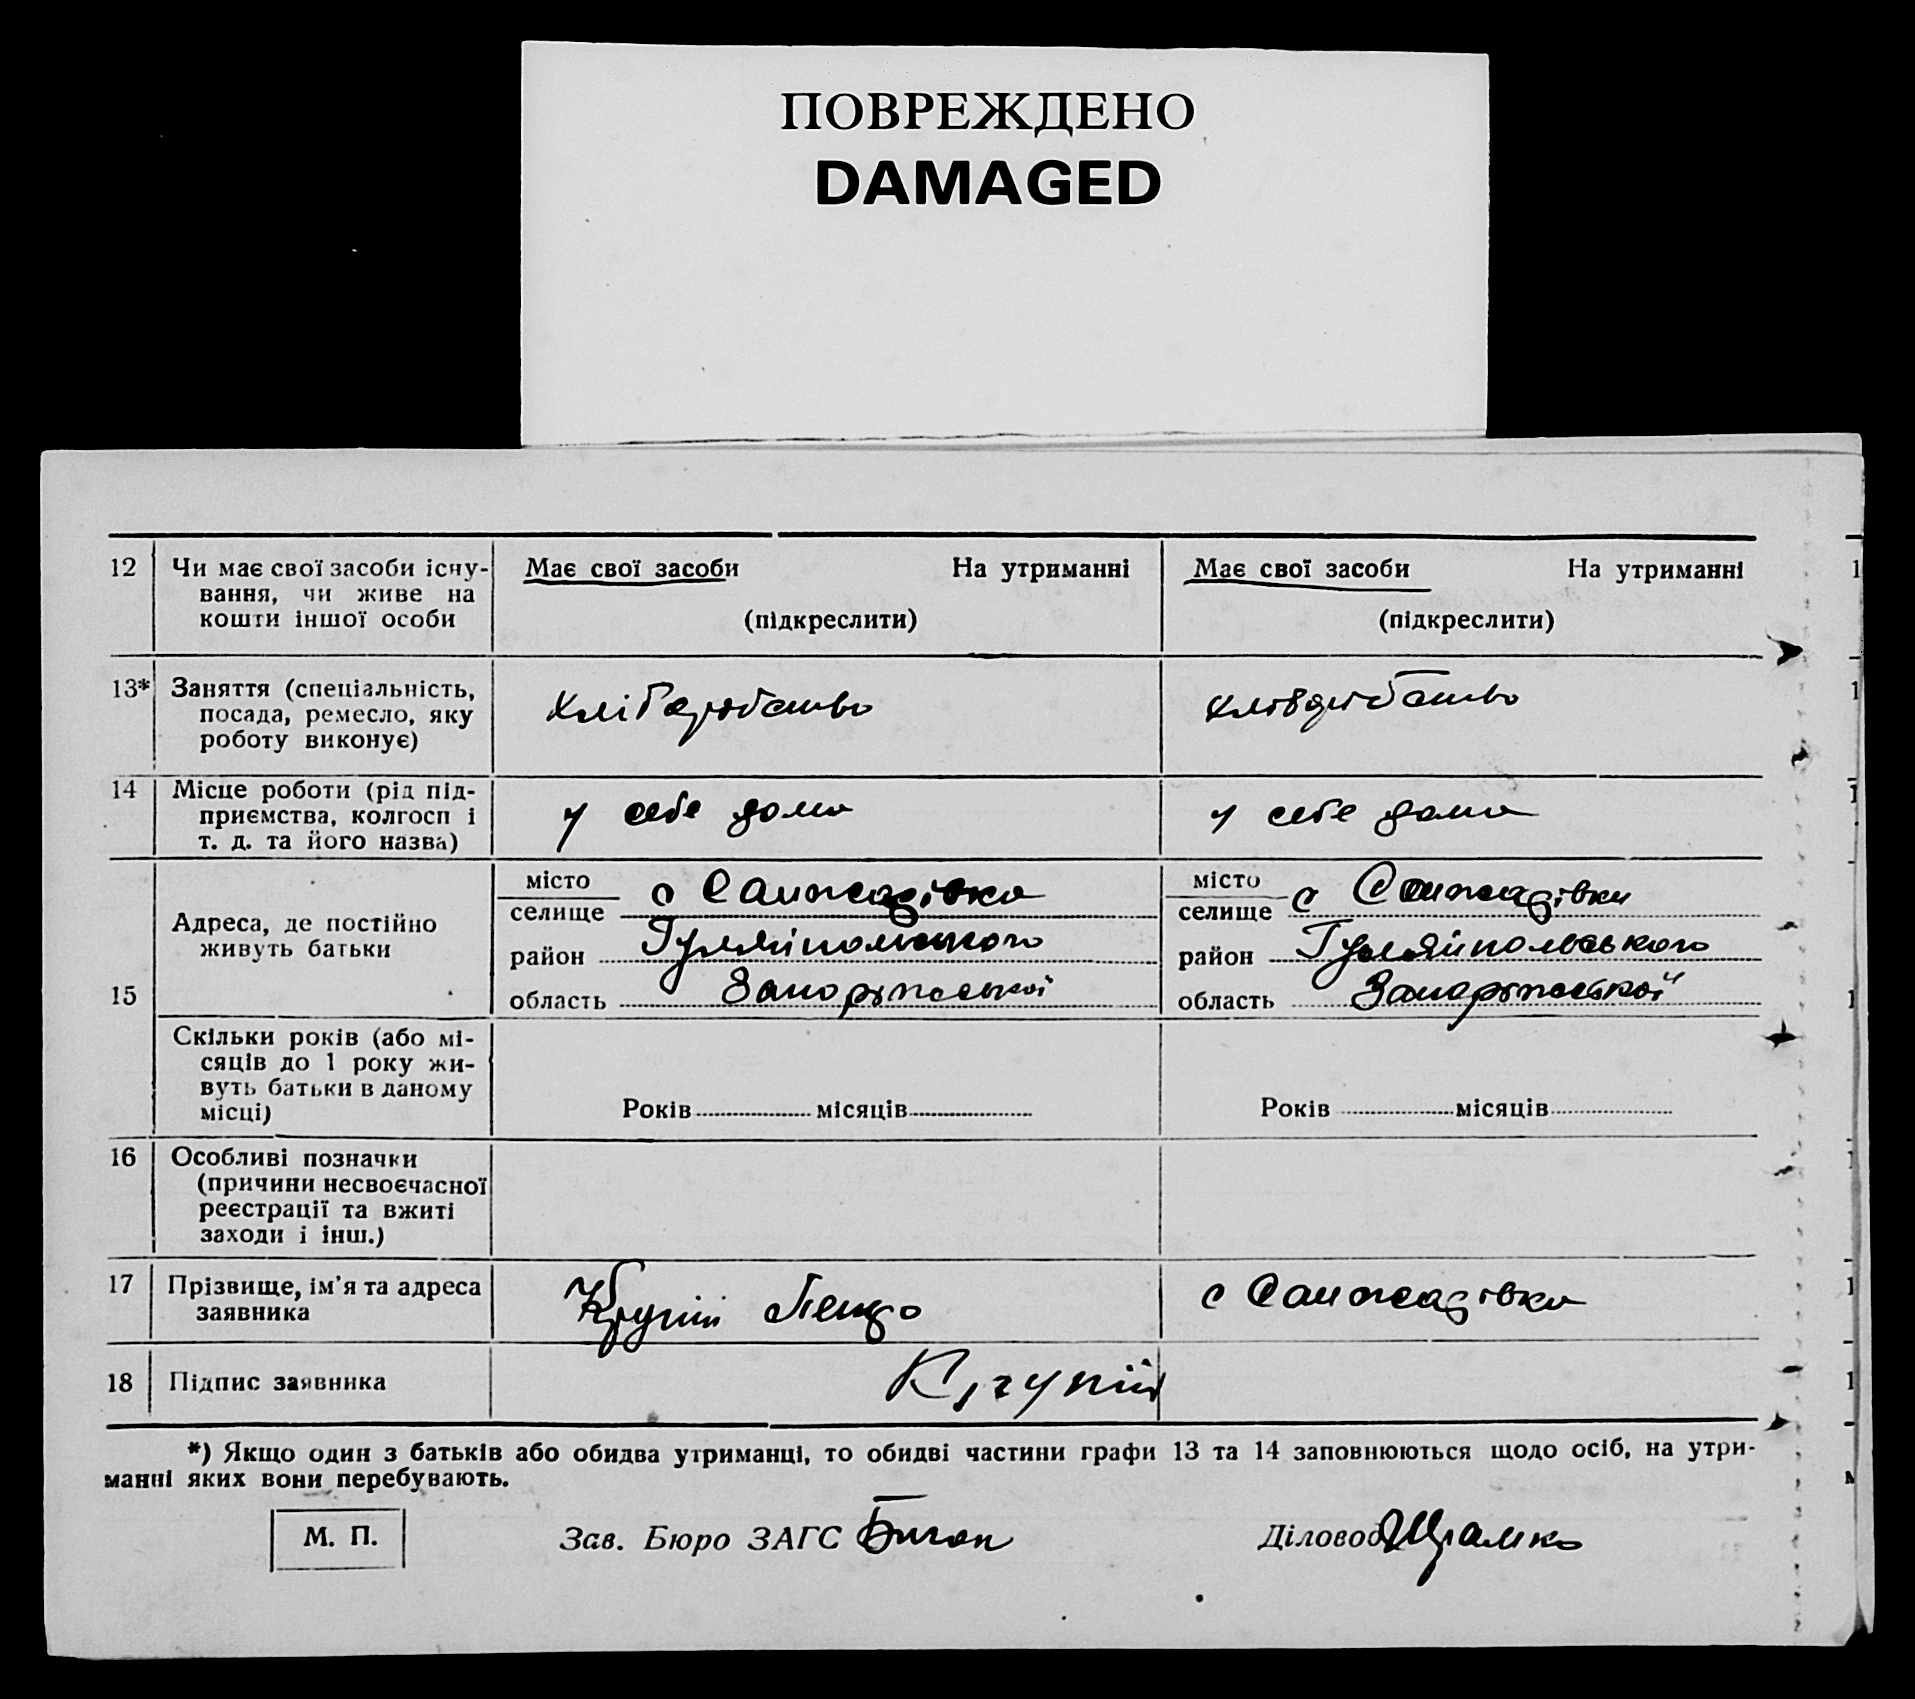 ПОВРЕЖДЕНО
DAMAGED
12 Чи має свої засоби існу-
вання, чи живе на
кошти іншої особи
Має свої засоби На утриманні
(підкреслити)
Має свої засоби На утриманні
(підкреслити)
13* Заняття (спеціальність,
посада, ремесло, яку
роботу виконує)
хліборобство
хліборобство
14 Місце роботи (рід під-
приємства, колгосп і
т. д. та його назва)
у себе дома
у себе дома
15 Адреса, де постійно
живуть батьки
місто
селище с Санжарівка
район Гуляйпольського
область Запоріжської
місто
селище с Санжарівка
район Гуляйпольського
область Запоріжської
Скільки років (або мі-
сяців до 1 року жи-
вуть батьки в даному
місці)
Років місяців
Років місяців
16 Особливі позначки
(причини несвоєчасної
реєстрації та вжиті
заходи і інш.)
17 Прізвище, ім'я та адреса
заявника
Крупій
с Санжарівка
18 Підпис заявника
Крупій
*) Якщо один з батьків або обидва утриманці, то обидві частини графи 13 та 14 заповнюються щодо осіб, на утри-
манні яких вони перебувають.
М. П.
Зав. Бюро ЗАГС
Діловод Шрамко